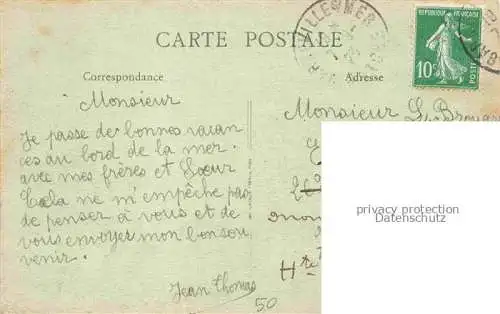 CARTE POSTALE
RÉPUBLIQUE FRANÇAISE
10c
Correspondance
Adresse
Monsieur
Je passe de bonnes vacan
ces au bord de la mer.
avec mes frères et Sœur
Cela ne m'empêche pas
de penser à vous et de
vous envoyer mon bon sou
venir.
Jean Thomas
50
Monsieur
Hte
privacy protection
Datenschutz